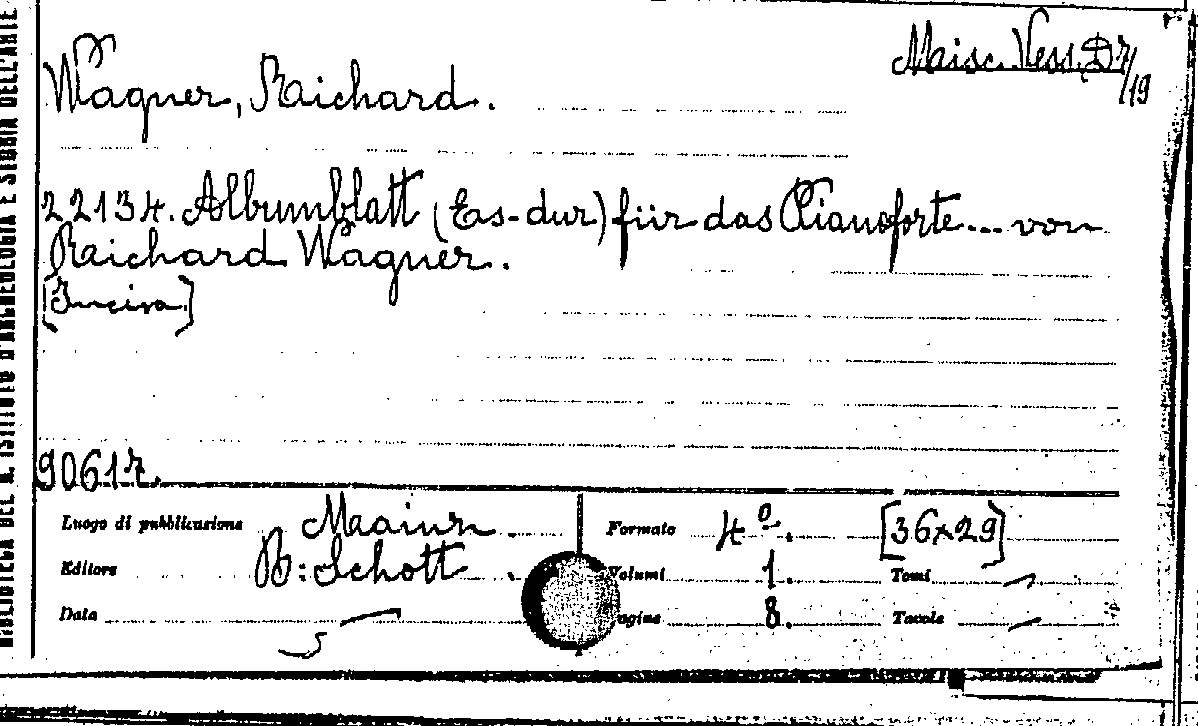 Maisc. Vess. D7/19
Wagner, Raichard.
22134. Albumblatt (Es-dur) für das Pianoforte... von
Raichard Wagner.
[Incisa]
90617.
Luogo di pubblicazione Maainz
Editore B: Schott
Data
Formato 4º. [36x29]
Volumi 1. Tomi —
Pagine 8. Tavole —
BIBLIOTECA DEL R. ISTITUTO D'ARCHEOLOGIA E STORIA DELL'ARTE